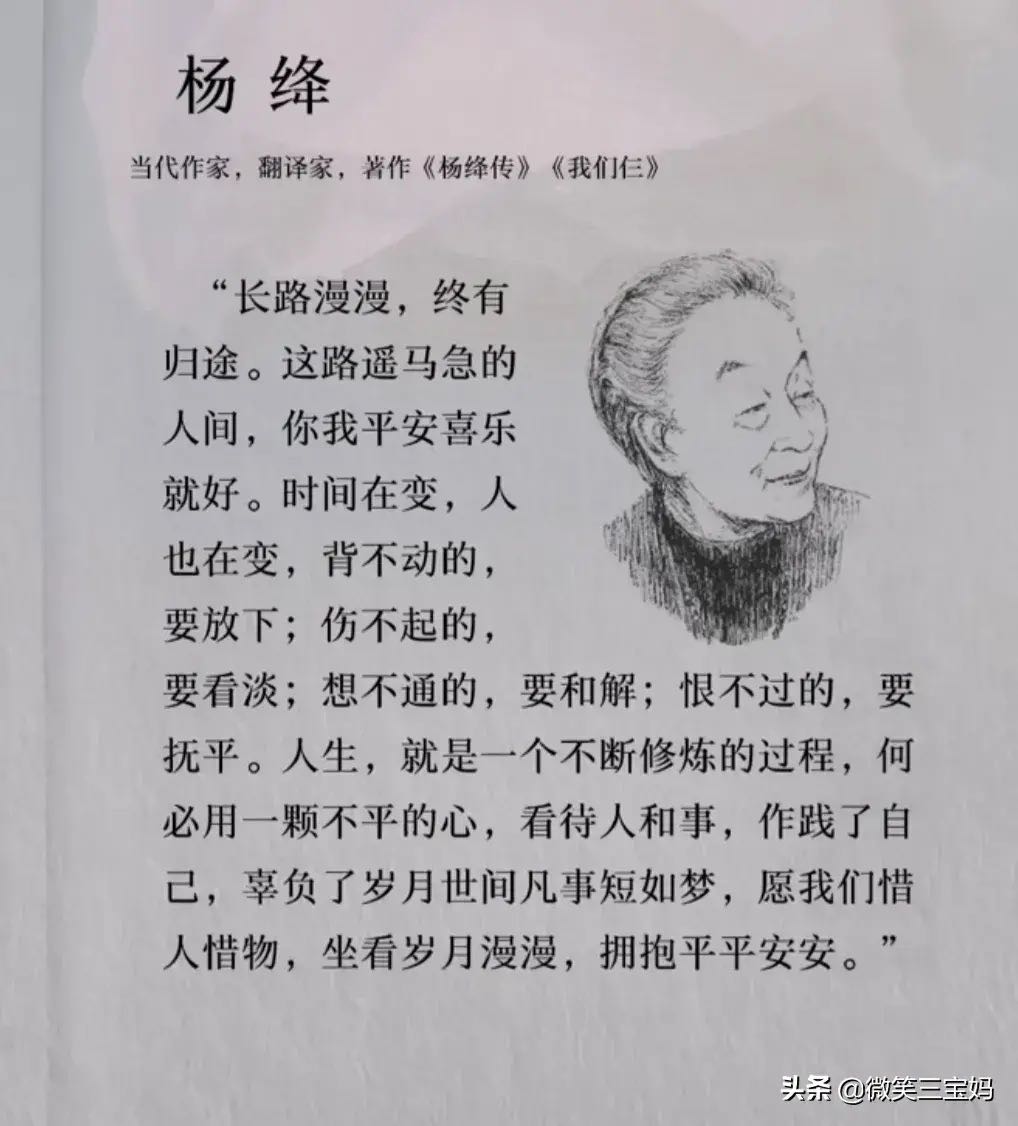 杨绛
当代作家，翻译家，著作《杨绛传》《我们仨》
“长路漫漫，终有
归途。这路遥马急的
人间，你我平安喜乐
就好。时间在变，人
也在变，背不动的，
要放下；伤不起的，
要看淡；想不通的，要和解；恨不过的，要
抚平。人生，就是一个不断修炼的过程，何
必用一颗不平的心，看待人和事，作践了自
己，辜负了岁月世间凡事短如梦，愿我们惜
人惜物，坐看岁月漫漫，拥抱平平安安。”
头条 @微笑三宝妈